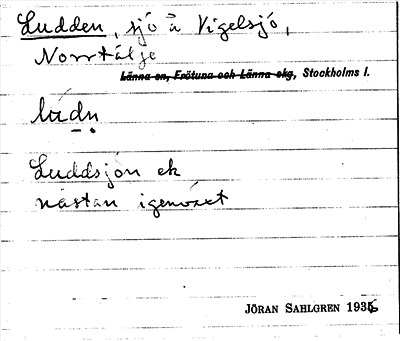 Ludden, sjö å Vigelsjö,
Norrtälje
Länna sn, Frötuna och Länna skg, Stockholms l.
lúdn
Luddsjön ek
nästan igenväxt
JÖRAN SAHLGREN 1936